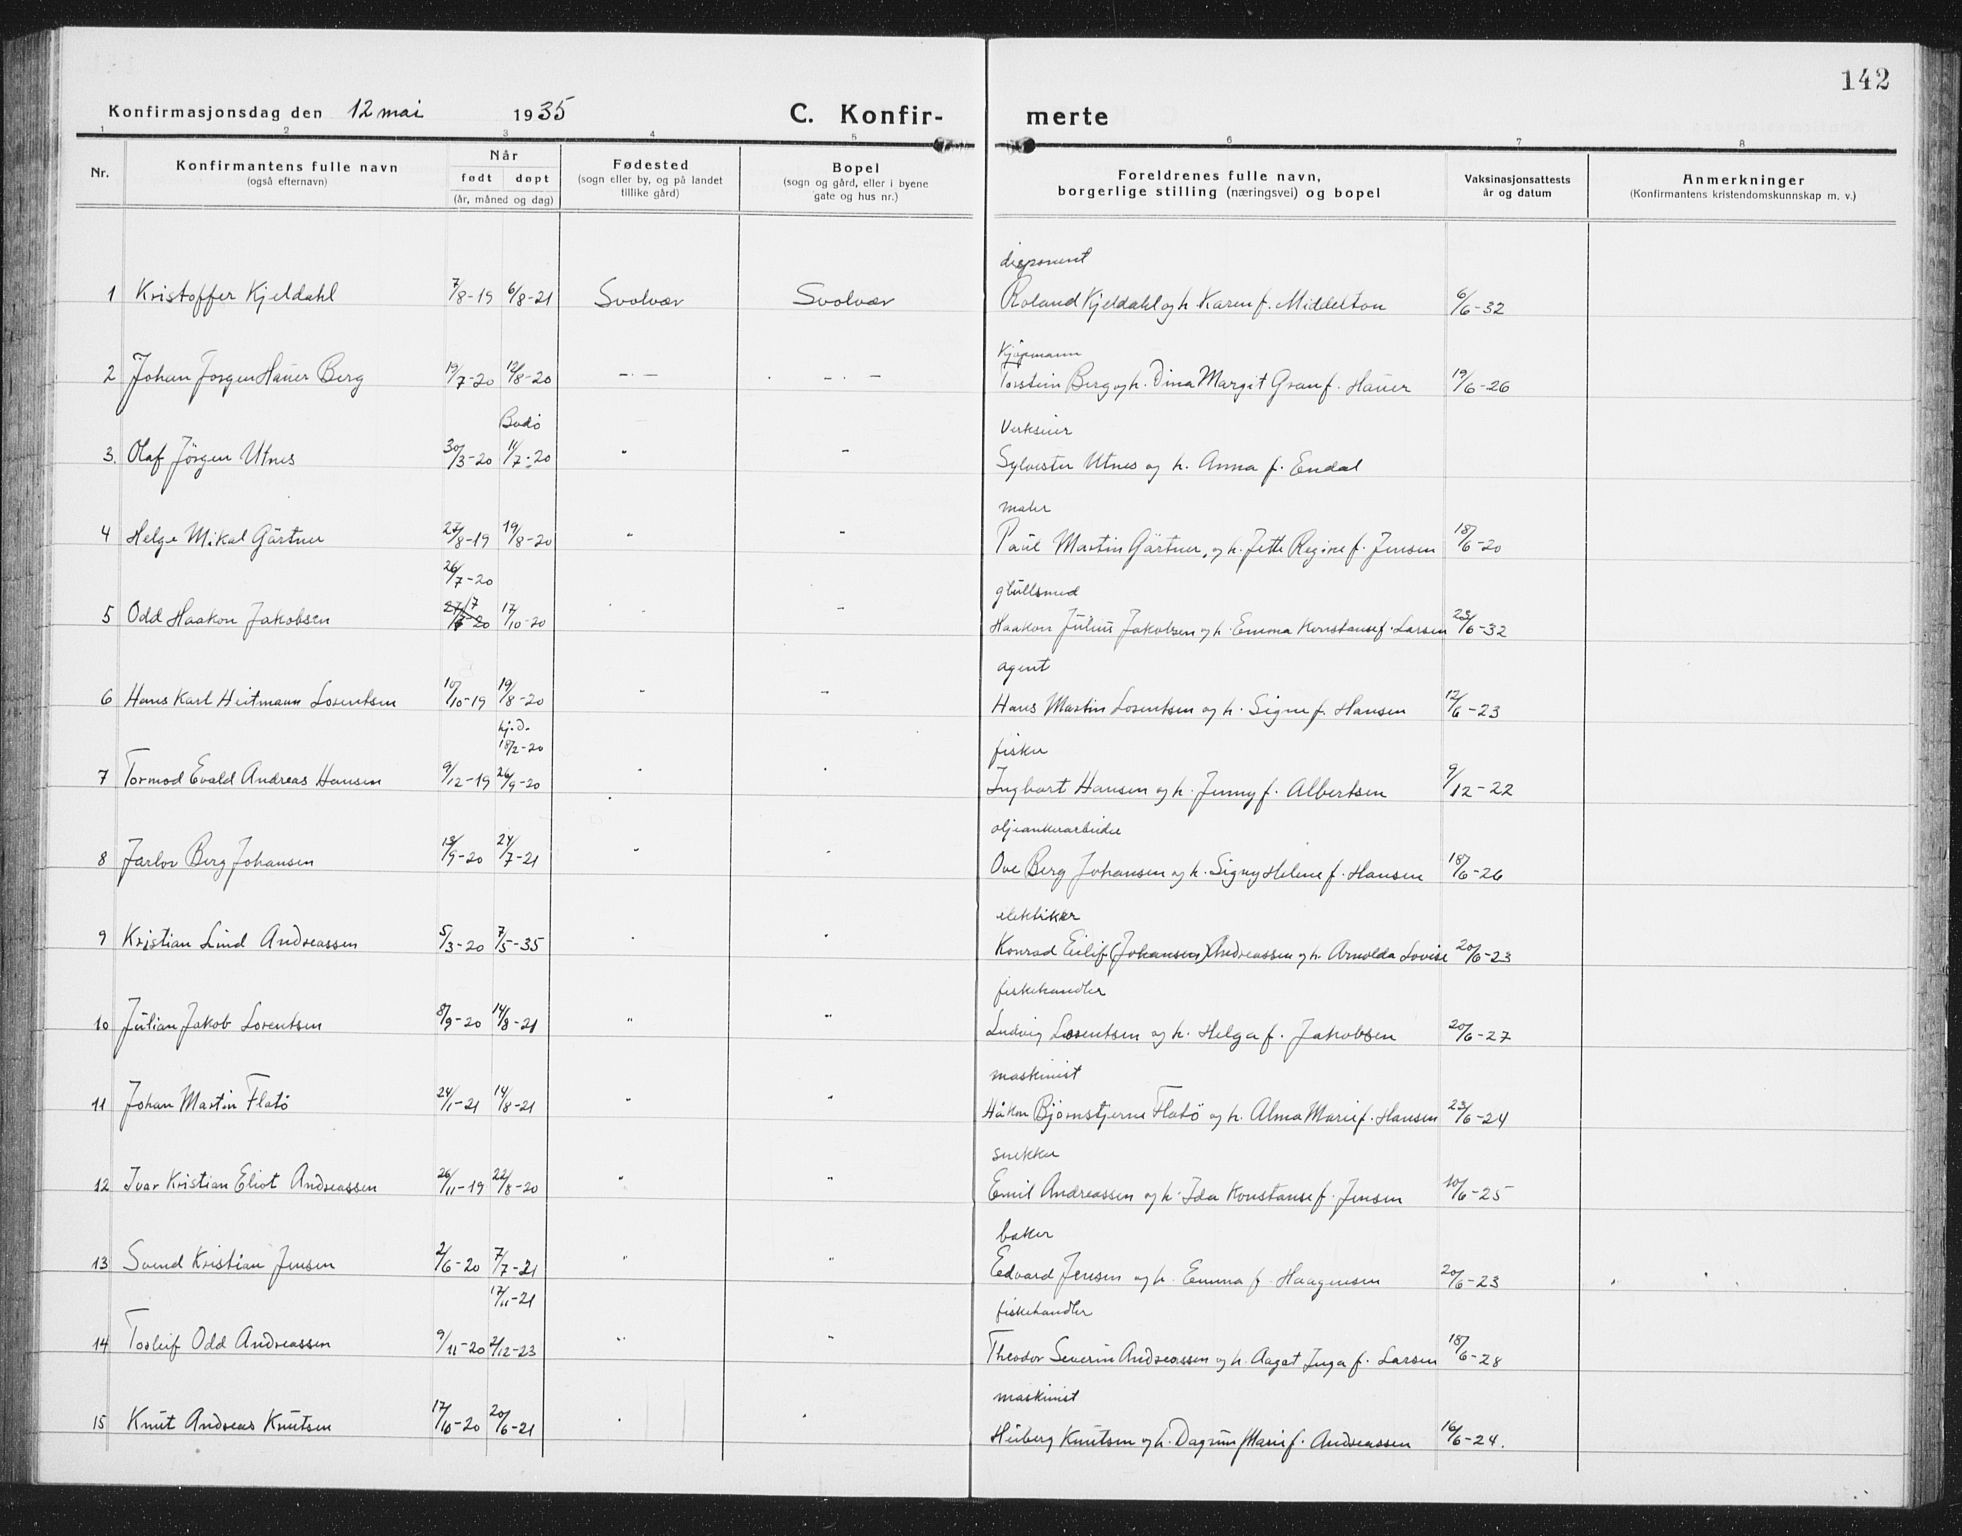 142
Konfirmasjonsdag den 12 mai 1935 C. Konfir- merte
1 2 3 4 5 6 7 8
Nr. Konfirmantens fulle navn (også efternavn) Når født døpt (år, måned og dag) Fødested (sogn eller by, og på landet tillike gård) Bopel (sogn og gård, eller i byene gate og hus nr.) Foreldrenes fulle navn, borgerlige stilling (næringsvei) og bopel Vaksinasjonsattests år og datum Anmerkninger (Konfirmantens kristendomskunnskap m. v.)
disponent
1 Kristoffer Kjeldahl 7/8-19 6/8-21 Svolvær Svolvær Roland Kjeldahl og h. Karen f. Middelton 6/6-32
Kjøpmann
2 Johan Jørgen Hauer Berg 19/7-20 12/8-20 -.- -.- Torstein Berg og h. Dina Margit Gran f. Hauer 19/6-26
Bodö Verkseier
3. Olaf Jörgen Utnes 30/3-20 11/7-20 " " Sylvester Utnes og h. Anna f. Endal
maler
4 Helge Mikal Gärtner 27/8-19 19/8-20 " " Paul Martin Gärtner, og h. Jette Regine f. Jensen 18/6-20
26/7-20 gullsmed
5 Odd Haakon Jakobsen 17/10-20 " " Haakon Julius Jakobsen og h. Emma Konstanse f. Larsen 23/6-32
agent
6 Hans Karl Heitmann Lorentsen 10/10-19 19/8-20 " " Hans Martin Lorentsen og h. Signe f. Hansen 12/6-23
hj.d. 18/2-20 fisker
7 Tormod Evald Andreas Hansen 9/12-19 26/9-20 " " Ingbart Hansen og h. Jenny f. Albertsen 9/12-22
oljeankerarbeider
8 Jarlov Berg Johansen 13/9-20 24/7-21 " " Ove Berg Johansen og h. Signy Helene f. Hansen 18/6-26
elektriker
9 Kristian Lind Andreassen 5/3-20 7/5-35 " " Konrad Eilif (Johansen) Andreassen og h. Arnolda Lovise 20/6-23
fiskehandler
10 Julian Jakob Lorentsen 8/9-20 14/8-21 " " Ludvig Lorentsen og h. Helga f. Jakobsen 20/6-27
maskinist
11 Johan Martin Flatö 24/1-21 14/8-21 " " Håkon Bjørnstjerne Flatö og h. Alma Marie f. Hansen 23/6-24
snekker
12 Ivar Kristian Eliot Andreassen 26/11-19 22/8-20 " " Emil Andreassen og h. Ida Konstanse f. Jensen 10/6-25
baker
13 Svend Kristian Jensen 2/6-20 7/7-21 " " Edvard Jensen og h. Emma f. Haagensen 20/6-23
17/11-21 fiskehandler
14 Torleif Odd Andreassen 9/11-20 2/12-23 " " Theodor Severin Andreassen og h. Aagot Inga f. Larsen 18/6-28
maskinist
15 Knut Andreas Knutsen 17/10-20 20/6-21 " " Heiberg Knutsen og h. Dagrun Marie f. Andreassen 16/6-24.